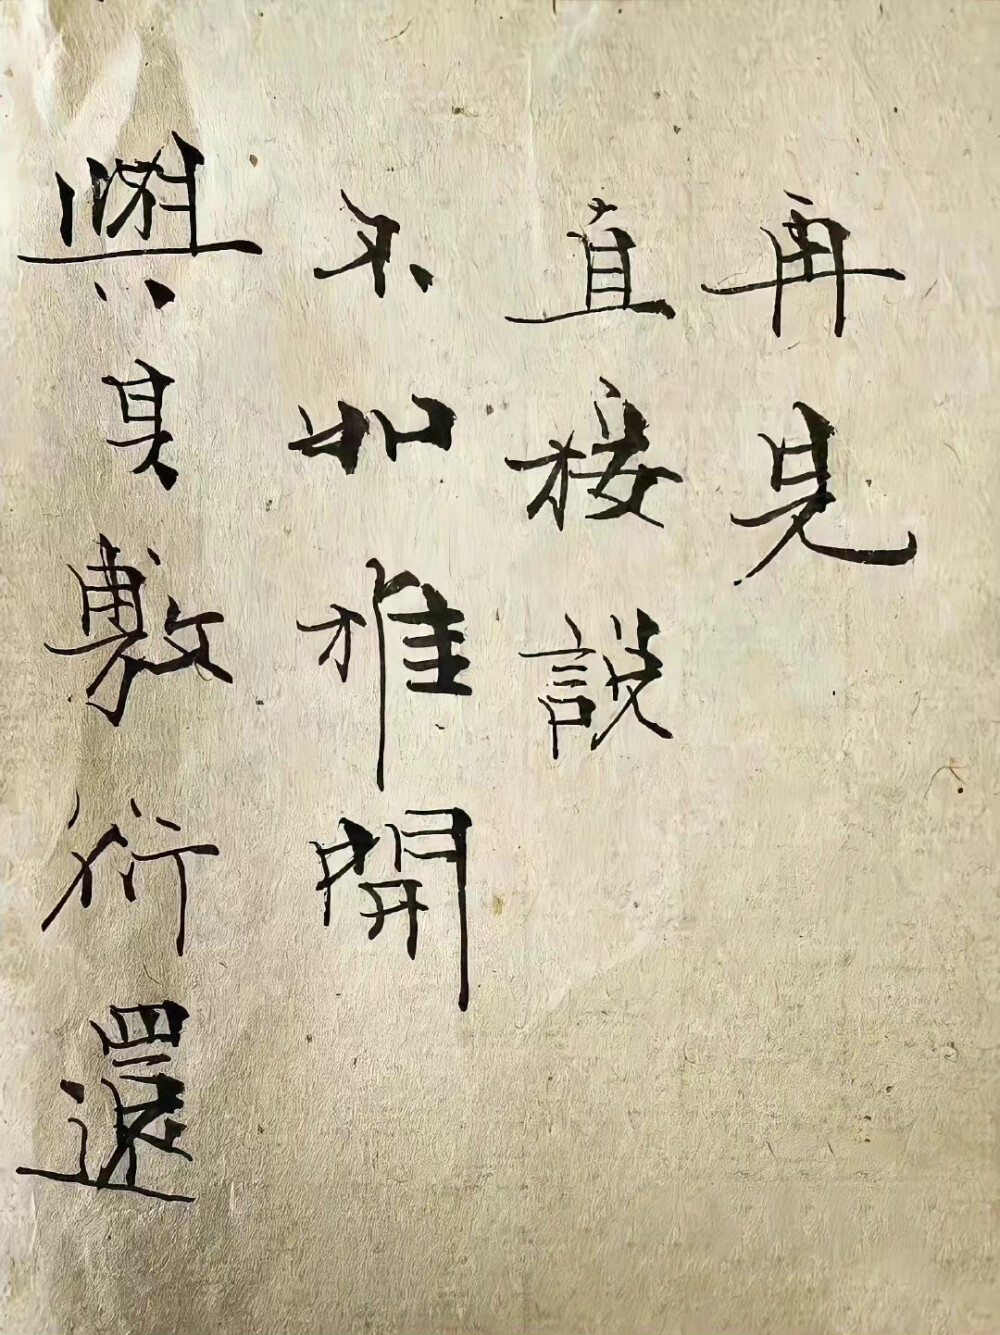 與其敷衍還
不如推開
直接說
再見